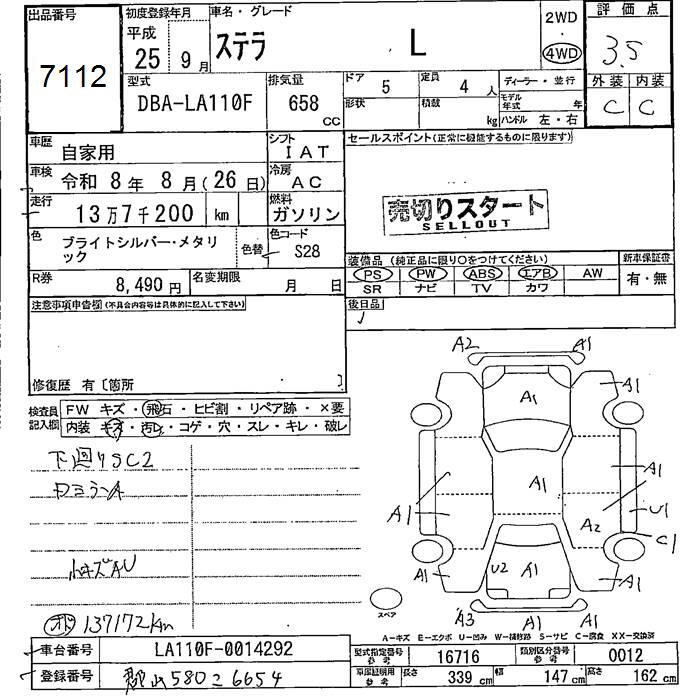 出品番号
7112
初度登録年月
平成
25年9月
車名・グレード
ステラ L
2WD
4WD
評価点
3.5
外装 内装
C C
型式
DBA-LA110F
排気量
658
CC
ドア 5
形状
定員 4人
積載 kg
ディーラー・並行
モデル年式 年
ハンドル 左・右
車歴 自家用
シフト IAT
車検 令和8年8月(26日)
冷房 AC
走行 13万7千200 km
燃料 ガソリン
色 ブライトシルバー・メタリック
色替
色コード S28
R券 8,490円
名変期限 月 日
セールスポイント(正常に機能するものに限ります)
売切りスタート
SELLOUT
装備品(純正品に限り○をつけてください)
PS PW ABS エアB AW
SR ナビ TV カワ
新車保証書
有・無
後日品
注意事項申告欄(不具合内容等は具体的に記入して下さい)
修復歴 有〔箇所 〕
検査員記入欄
FW キズ・飛石・ヒビ割・リペア跡・×要
内装 キズ・汚レ・コゲ・穴・スレ・キレ・破レ
下廻りSC2
小キズAU
137172km
A2 A1
A1 A1
A1
A1 A1 A1
U1
A2
C1
A1 U2 A1 A1
A3 A1 A1
スペア
A-キズ E-エクボ U-凹み W-補修跡 S-サビ C-腐食 XX-交換済
車台番号 LA110F-0014292
登録番号 郡山580こ6654
型式指定番号 参考 16716
類別区分番号 参考 0012
車庫証明用 参考 長さ 339cm 幅 147cm 高さ 162cm